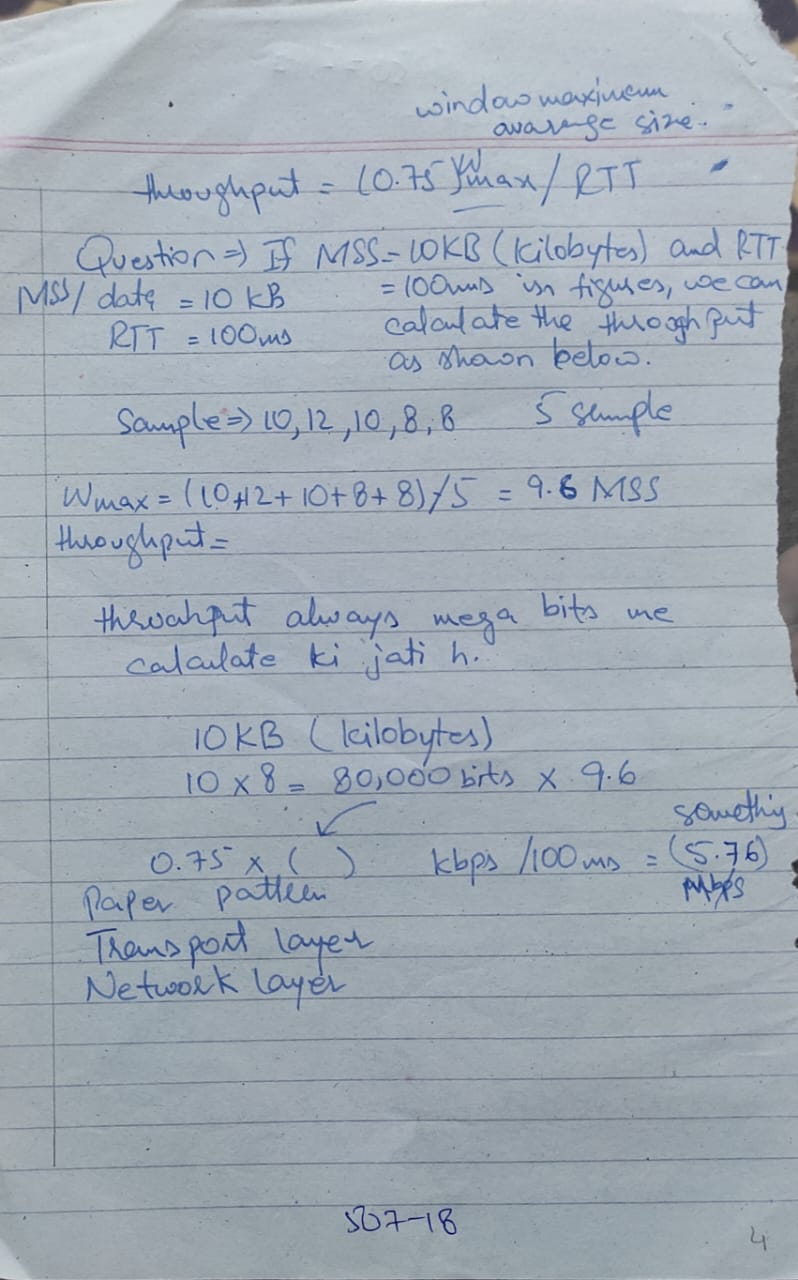 window maximum
avarange size.
throughput = (0.75) Wmax / RTT
Question => If MSS = 10KB (kilobytes) and RTT
MSS/ data = 10 kB = 100ms in figures, we can
RTT = 100ms calculate the throoghput
as shown below.
Sample => 10, 12, 10, 8, 8 5 semple
Wmax = (10+12+10+8+8)/5 = 9.6 MSS
throughput =
throahput always mega bits me
calculate ki jati h.
10KB (kilobytes)
10 x 8 = 80,000 bits x 9.6
somethig
0.75 x ( ) kbps /100 ms = (5.76)
Mbps
Paper pattern
Transport layer
Network layer
507-18
4